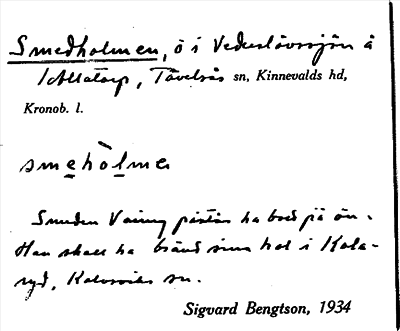 Smedholmen, ö i Vederslövssjön å
Allatorp, Tävelsås sn, Kinnevalds hd,
Kronob. l.
smehòlmen
Smeden Vaing påstås ha bott på ön.
Han skall ha bränt sina kol i Kola-
ryd, Kalvsviks sn.
Sigvard Bengtson, 1934